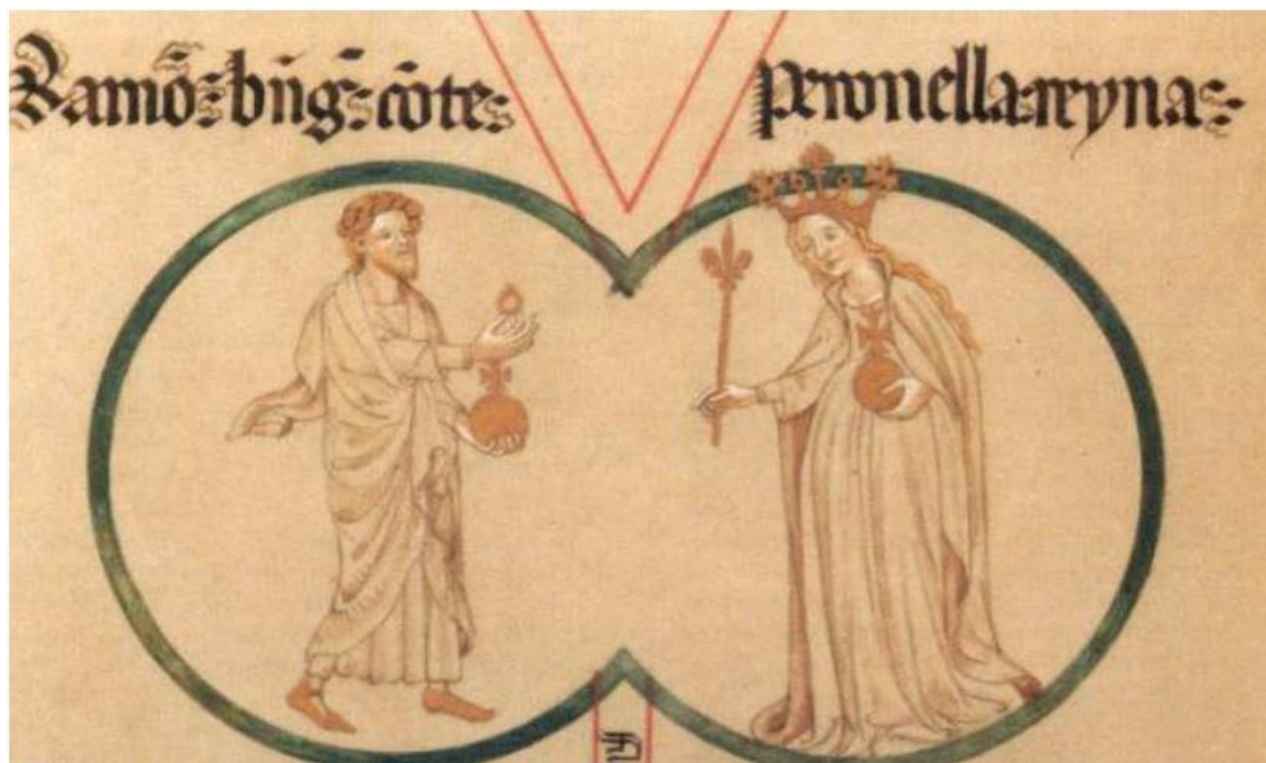 Ramō: bn̄ḡ: cōte:
peronella: reyna: